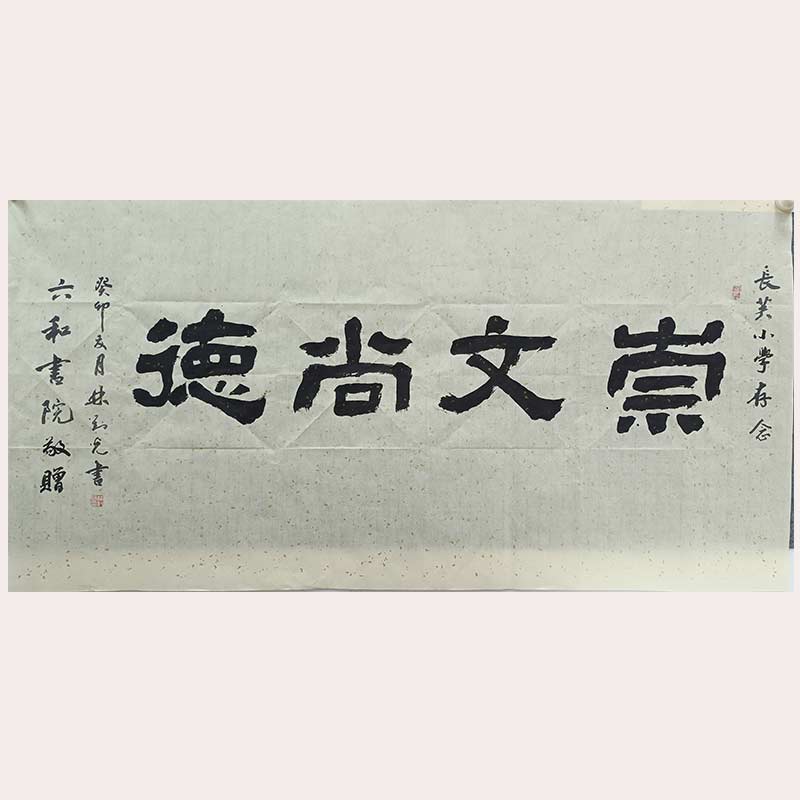 長芙小學存念
崇文尚德
癸卯亥月林剑光書
六和書院敬贈